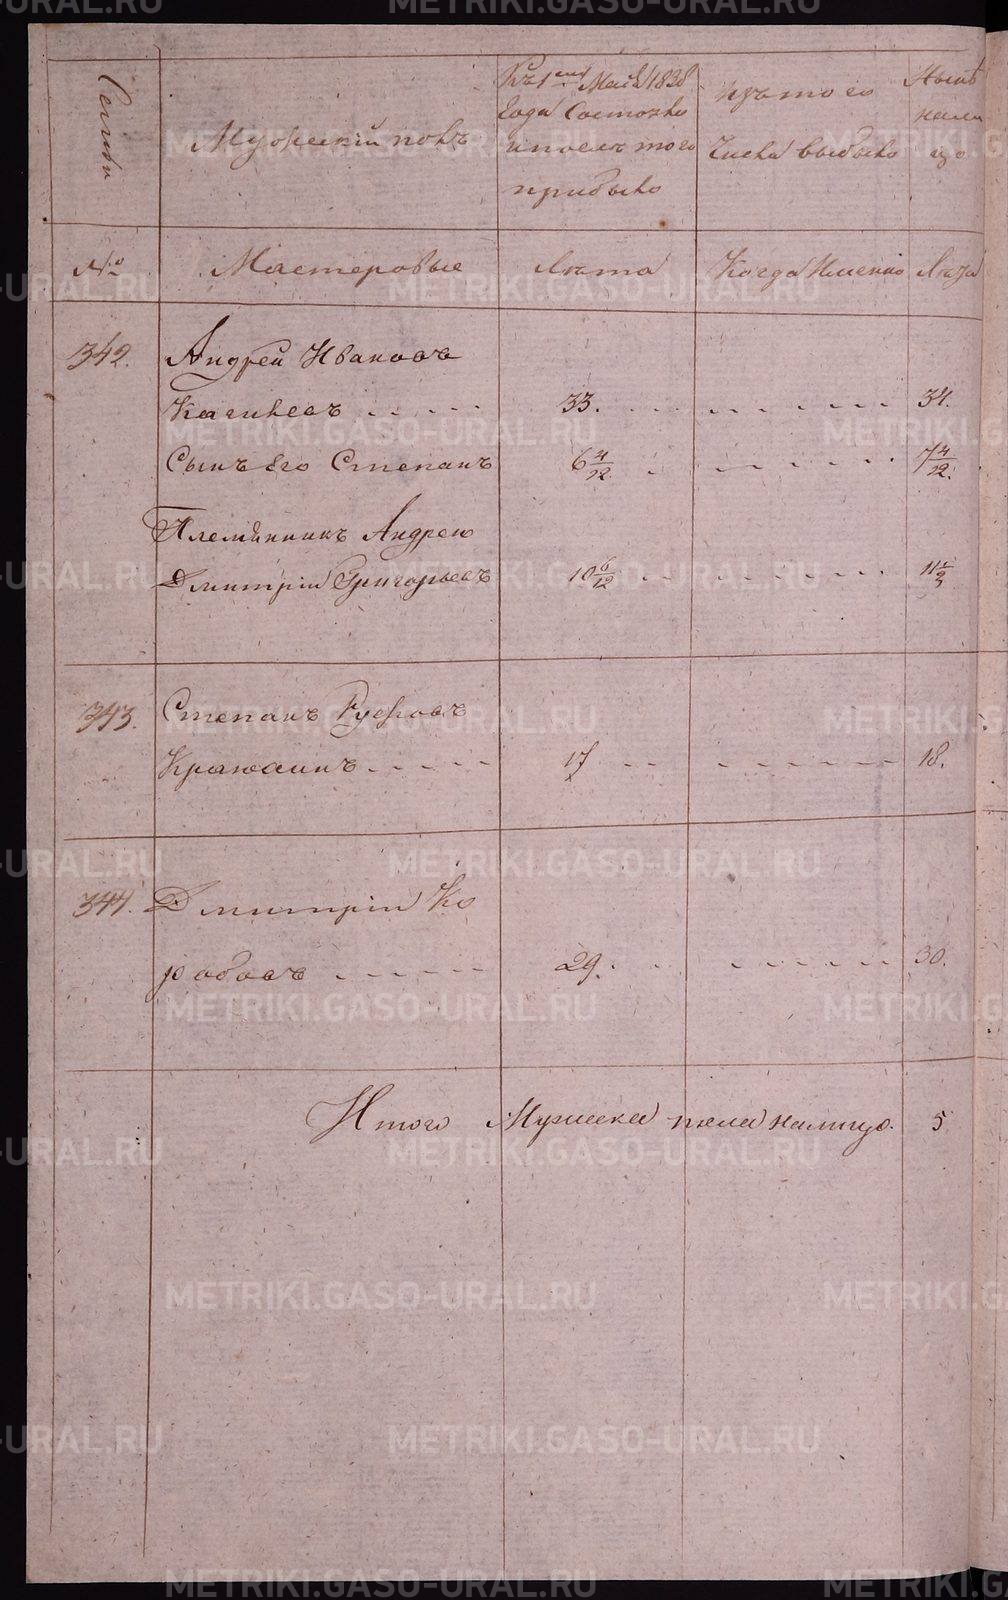 METRIKI.GASO-URAL.RU
Семьи
Мужескiй полъ
Къ 1 Маiя 1838
года Состояло
и после того
прибыло
Изъ того
Числа выбыло
Нынѣ
нали
цо
№
Мастеровые
Лѣта
Когда Именно
Лѣта
342.
Андрей Ивановъ
33.
34.
Сынъ его Степанъ
6 4/12
7 4/12
Племянникъ Андрею
Дмитрiй Григорьевъ
10 6/12
343.
Степанъ
17
18.
344.
Дмитрiй Ко
робовъ
29.
30.
Итого Мужеска пола налицо.
5